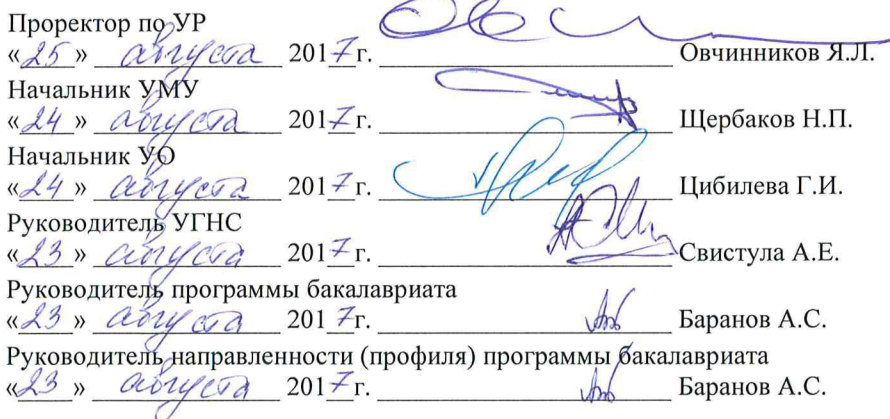 Проректор по УР
«25» августа 2017г. Овчинников Я.Л.
Начальник УМУ
«24» августа 2017г. Щербаков Н.П.
Начальник УО
«24» августа 2017г. Цибилева Г.И.
Руководитель УГНС
«23» августа 2017г. Свистула А.Е.
Руководитель программы бакалавриата
«23» августа 2017г. Баранов А.С.
Руководитель направленности (профиля) программы бакалавриата
«23» августа 2017г. Баранов А.С.